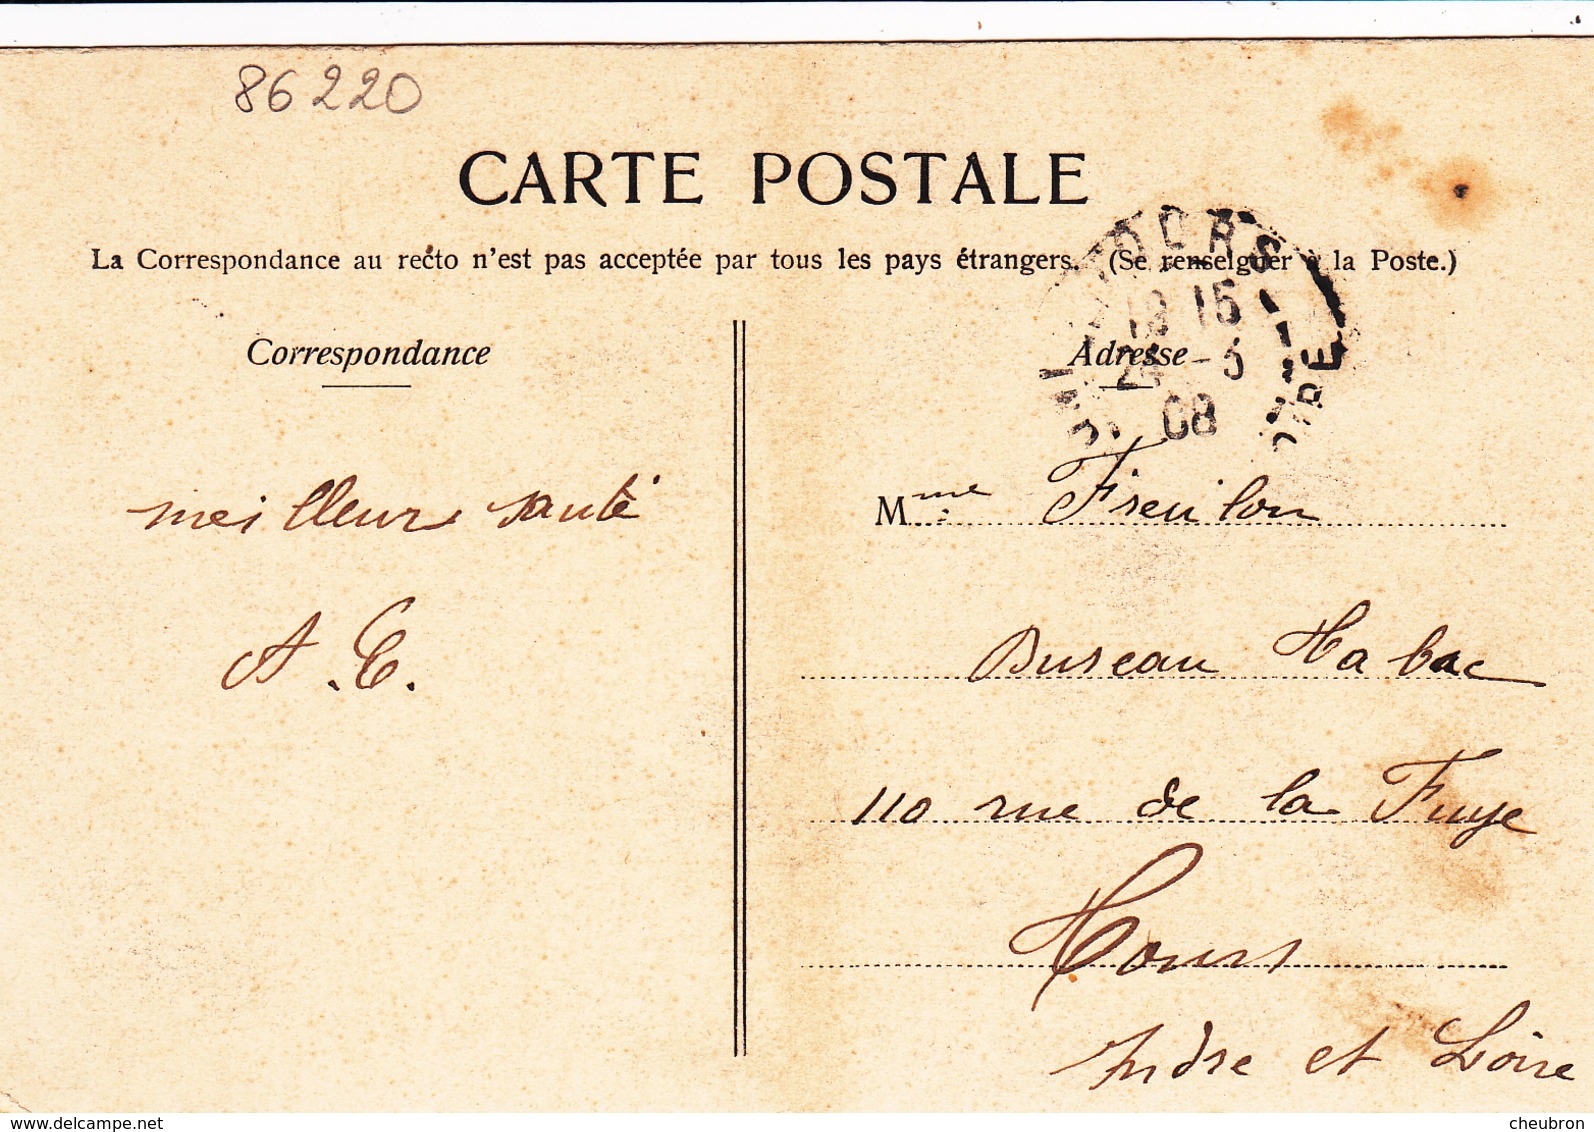 86220
CARTE POSTALE
La Correspondance au recto n'est pas acceptée par tous les pays étrangers. (Se renseigner à la Poste.)
TOURS
19 15
24 - 3
08
Correspondance
Adresse
meilleur santé
A. C.
Mme Freulon
Bureau Tabac
110 rue de la Fuye
Tours
Indre et Loire
www.delcampe.net
cheubron